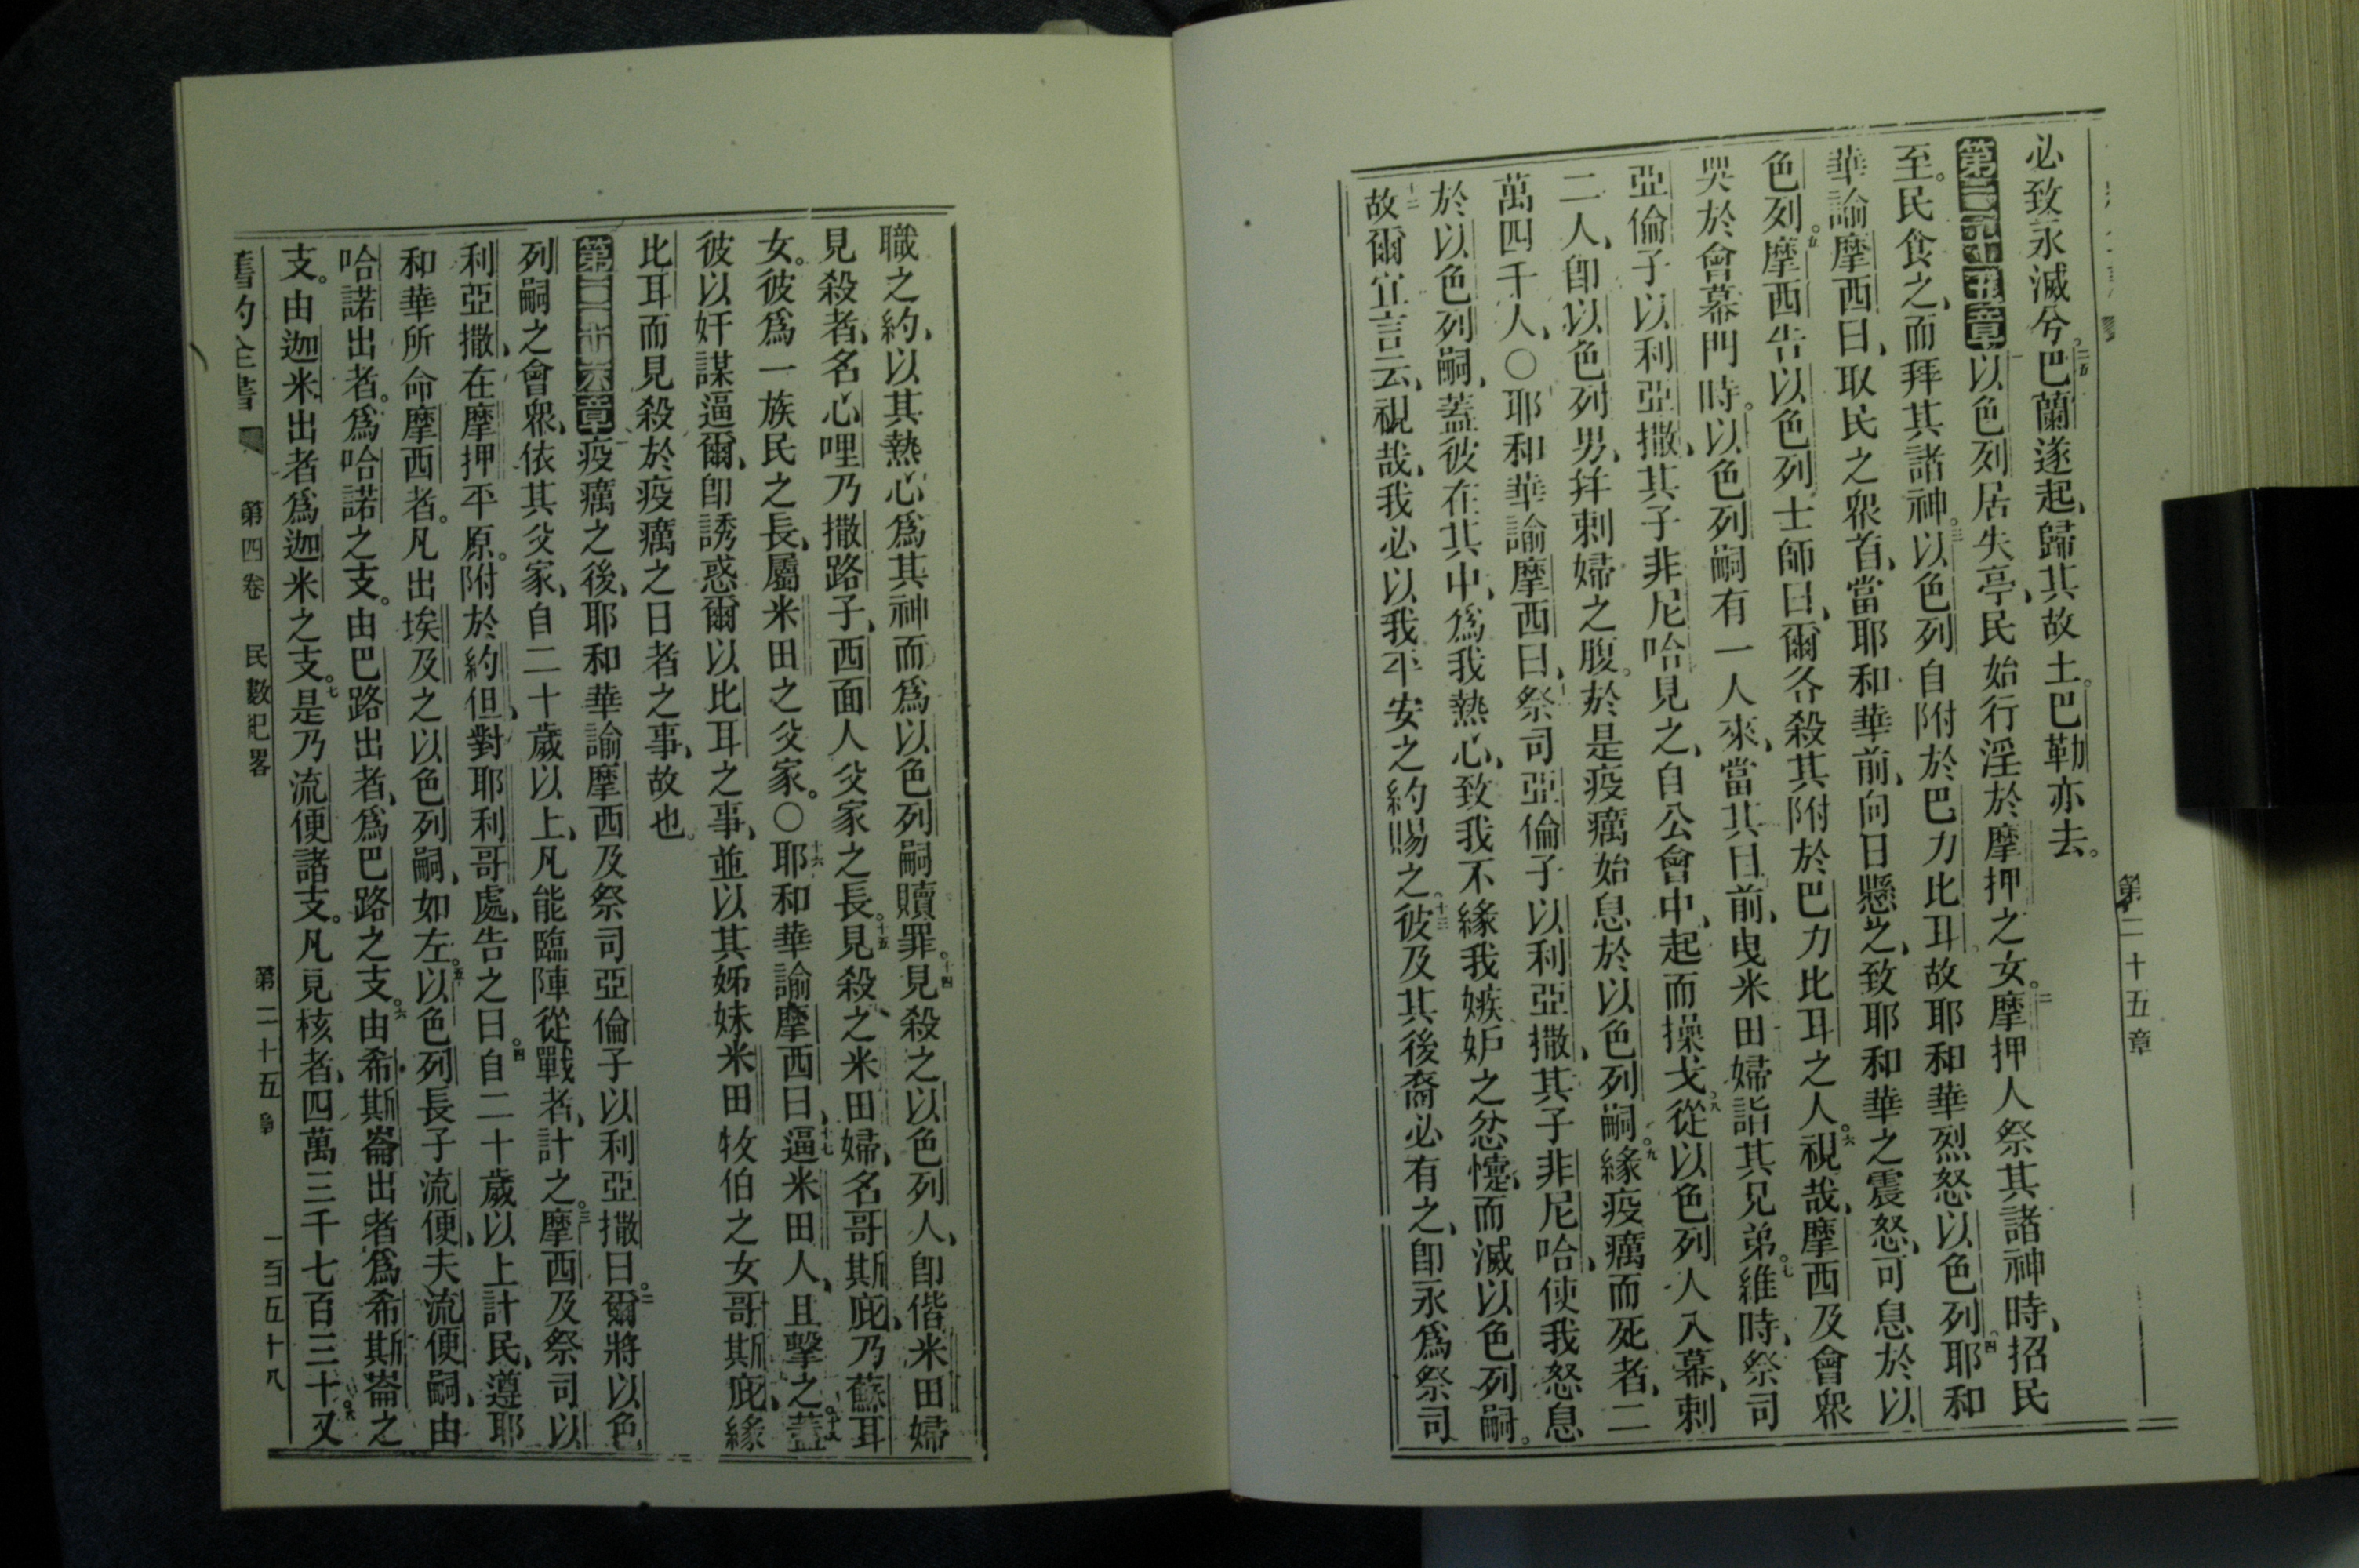 必致永滅兮。二五巴蘭遂起、歸其故土。巴勒亦去。
第二十五章一以色列居失亭、民始行淫於摩押之女。二摩押人祭其諸神時、招民
至。民食之、而拜其諸神。三以色列自附於巴力比耳。故耶和華烈怒以色列。四耶和
華諭摩西曰、取民之眾首、當耶和華前、向日懸之、致耶和華之震怒、可息於以
色列。五摩西告以色列士師曰、爾各殺其附於巴力比耳之人。六視哉、摩西及會眾
哭於會幕門時。以色列嗣有一人來、當其目前、曳米田婦詣其兄弟。七維時、祭司
亞倫子以利亞撒、其子非尼哈見之、自公會中、起而操戈。八從以色列人入幕、刺
二人、即以色列男、并刺婦之腹。於是疫癘始息於以色列嗣。九緣疫癘而死者、二
萬四千人、〇耶和華諭摩西曰、祭司亞倫子以利亞撒、其子非尼哈、使我怒息
於以色列嗣、蓋彼在其中、為我熱心、致我不緣我嫉妒之忿懥、而滅以色列嗣。
十二故爾宜言云、視哉、我必以我平安之約賜之。十三彼及其後裔必有之、即永為祭司
第二十五章
職之約、以其熱心為其神而為以色列嗣贖罪。十四見殺之以色列人、即偕米田婦
見殺者、名心哩乃撒路子、西面人父家之長。十五見殺之米田婦、名哥斯庇、乃蘇耳
女。彼為一族民之長、屬米田之父家。〇十六耶和華諭摩西曰、十七逼米田人、且擊之。十八蓋
彼以奸謀逼爾、即誘惑爾以比耳之事、並以其姊妹米田牧伯之女哥斯庇、緣
比耳而見殺於疫癘之日者之事、故也。
第二十六章一疫癘之後、耶和華諭摩西及祭司亞倫子以利亞撒曰。二爾將以色
列嗣之會眾、依其父家、自二十歲以上、凡能臨陣從戰者、計之。三摩西及祭司以
利亞撒、在摩押平原。附於約但、對耶利哥處、告之曰。四自二十歲以上計民、遵耶
和華所命摩西者。凡出埃及之以色列嗣、如左。五以色列長子流便、夫流便嗣、由
哈諾出者。為哈諾之支。由巴路出者、為巴路之支。六由希斯崙出者為希斯崙之
支。由迦米出者為迦米之支。七是乃流便諸支。凡見核者、四萬三千七百三十。八又
舊約全書 第四卷 民數紀畧 第二十五章 一百五十八